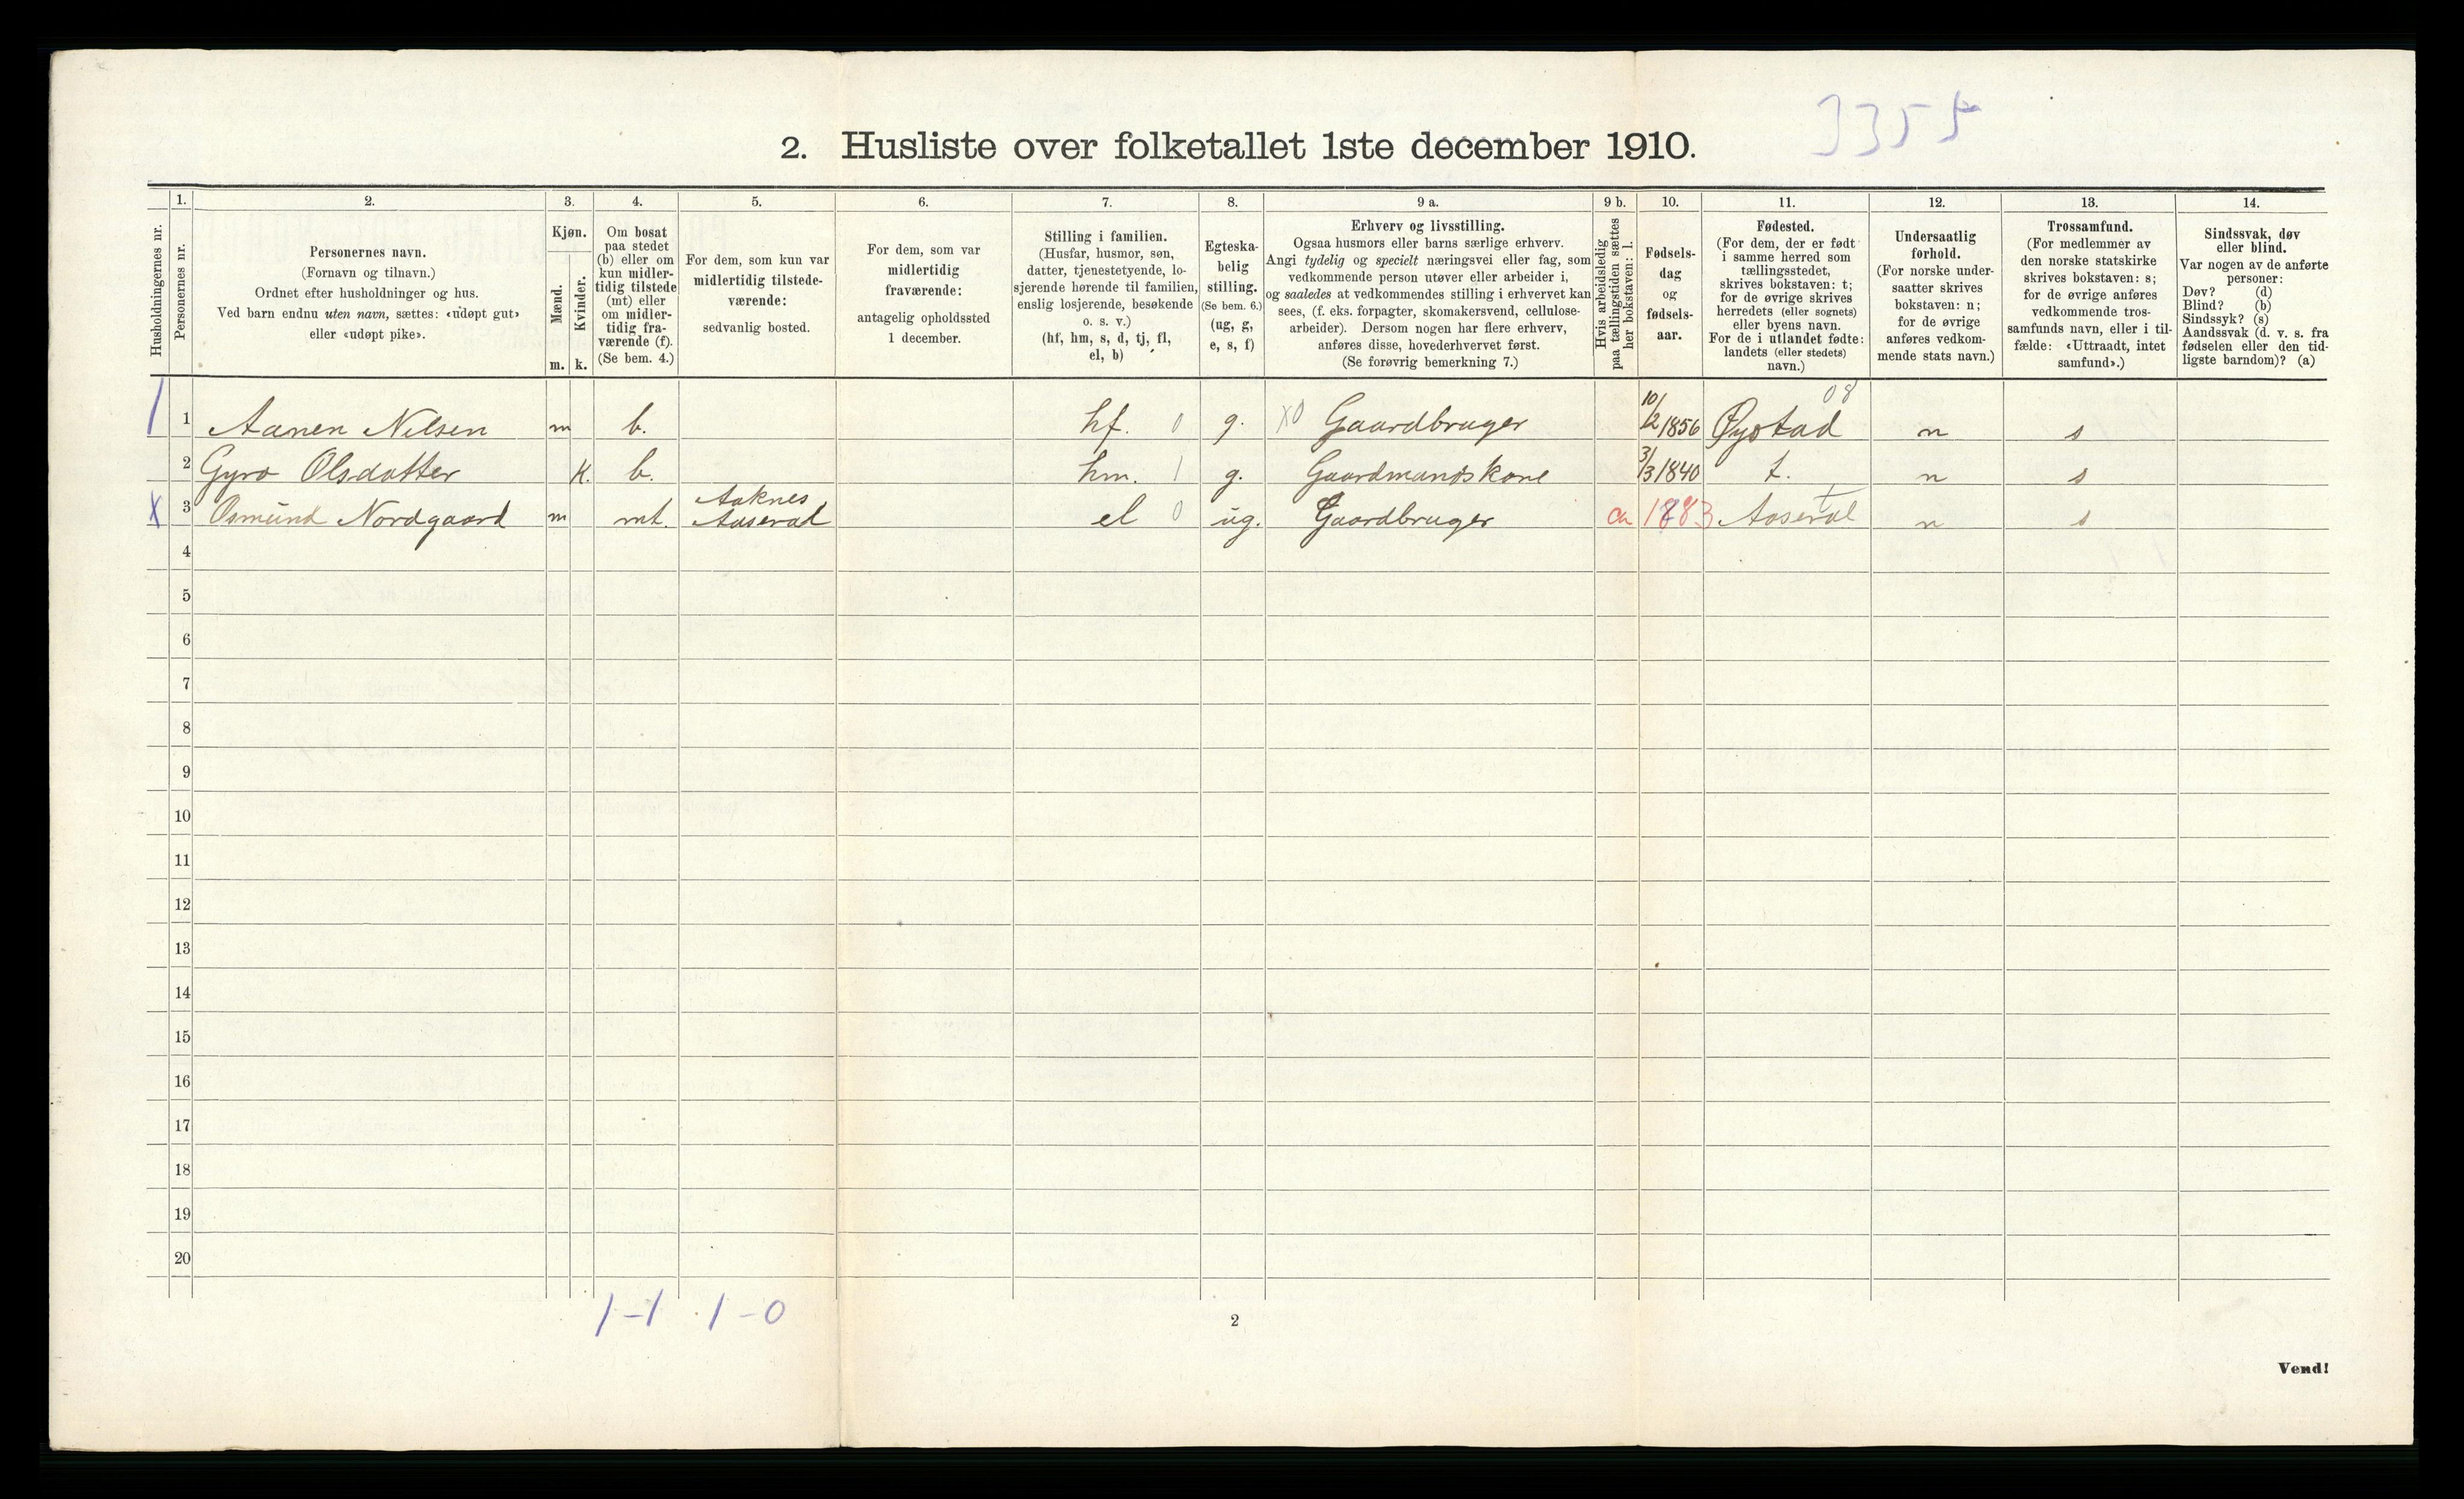 3355
2. Husliste over folketallet 1ste december 1910.
Husholdningernes nr.
1.
Personernes nr.
2.
Personernes navn.
(Fornavn og tilnavn.)
Ordnet efter husholdninger og hus.
Ved barn endnu uten navn, sættes: «udøpt gut»
eller «udøpt pike».
3.
Kjøn.
Mænd.
Kvinder.
m. k.
4.
Om bosat
paa stedet
(b) eller om
kun midler-
tidig tilstede
(mt) eller
om midler-
tidig fra-
værende (f).
(Se bem. 4.)
5.
For dem, som kun var
midlertidig tilstede-
værende:
sedvanlig bosted.
6.
For dem, som var
midlertidig
fraværende:
antagelig opholdssted
1 december.
7.
Stilling i familien.
(Husfar, husmor, søn,
datter, tjenestetyende, lo-
sjerende hørende til familien,
enslig losjerende, besøkende
o. s. v.)
(hf, hm, s, d, tj, fl,
el, b)
8.
Egteska-
belig
stilling.
(Se bem. 6.)
(ug, g,
e, s, f)
9 a.
Erhverv og livsstilling.
Ogsaa husmors eller barns særlige erhverv.
Angi tydelig og specielt næringsvei eller fag, som
vedkommende person utøver eller arbeider i,
og saaledes at vedkommendes stilling i erhvervet kan
sees, (f. eks. forpagter, skomakersvend, cellulose-
arbeider). Dersom nogen har flere erhverv,
anføres disse, hovederhvervet først.
(Se forøvrig bemerkning 7.)
9 b.
Hvis arbeidsledig
paa tællingstiden sættes
her bokstaven: l.
10.
Fødsels-
dag
og
fødsels-
aar.
11.
Fødested.
(For dem, der er født
i samme herred som
tællingsstedet,
skrives bokstaven: t;
for de øvrige skrives
herredets (eller sognets)
eller byens navn.
For de i utlandet fødte:
landets (eller stedets)
navn.)
12.
Undersaatlig
forhold.
(For norske under-
saatter skrives
bokstaven: n;
for de øvrige
anføres vedkom-
mende stats navn.)
13.
Trossamfund.
(For medlemmer av
den norske statskirke
skrives bokstaven: s;
for de øvrige anføres
vedkommende tros-
samfunds navn, eller i til-
fælde: «Uttraadt, intet
samfund».)
14.
Sindssvak, døv
eller blind.
Var nogen av de anførte
personer:
Døv? (d)
Blind? (b)
Sindssyk? (s)
Aandssvak (d. v. s. fra
fødselen eller den tid-
ligste barndom)? (a)
08
1 Aanen Nilsen m b. hf. 0 g. X0 Gaardbruger 10/2 1856 Øystad n s
2 Gyro Olsdatter K. b. hm. 1 g. Gaardmandskone 3/3 1840 t. n s
X 3 Osmund Nordgaard m mt. Aaknes Aaseral el 0 ug. Gaardbruger ca 1883 Aaseral n s
4
5
6
7
8
9
10
11
12
13
14
15
16
17
18
19
20
1-1 1-0
2
Vend!